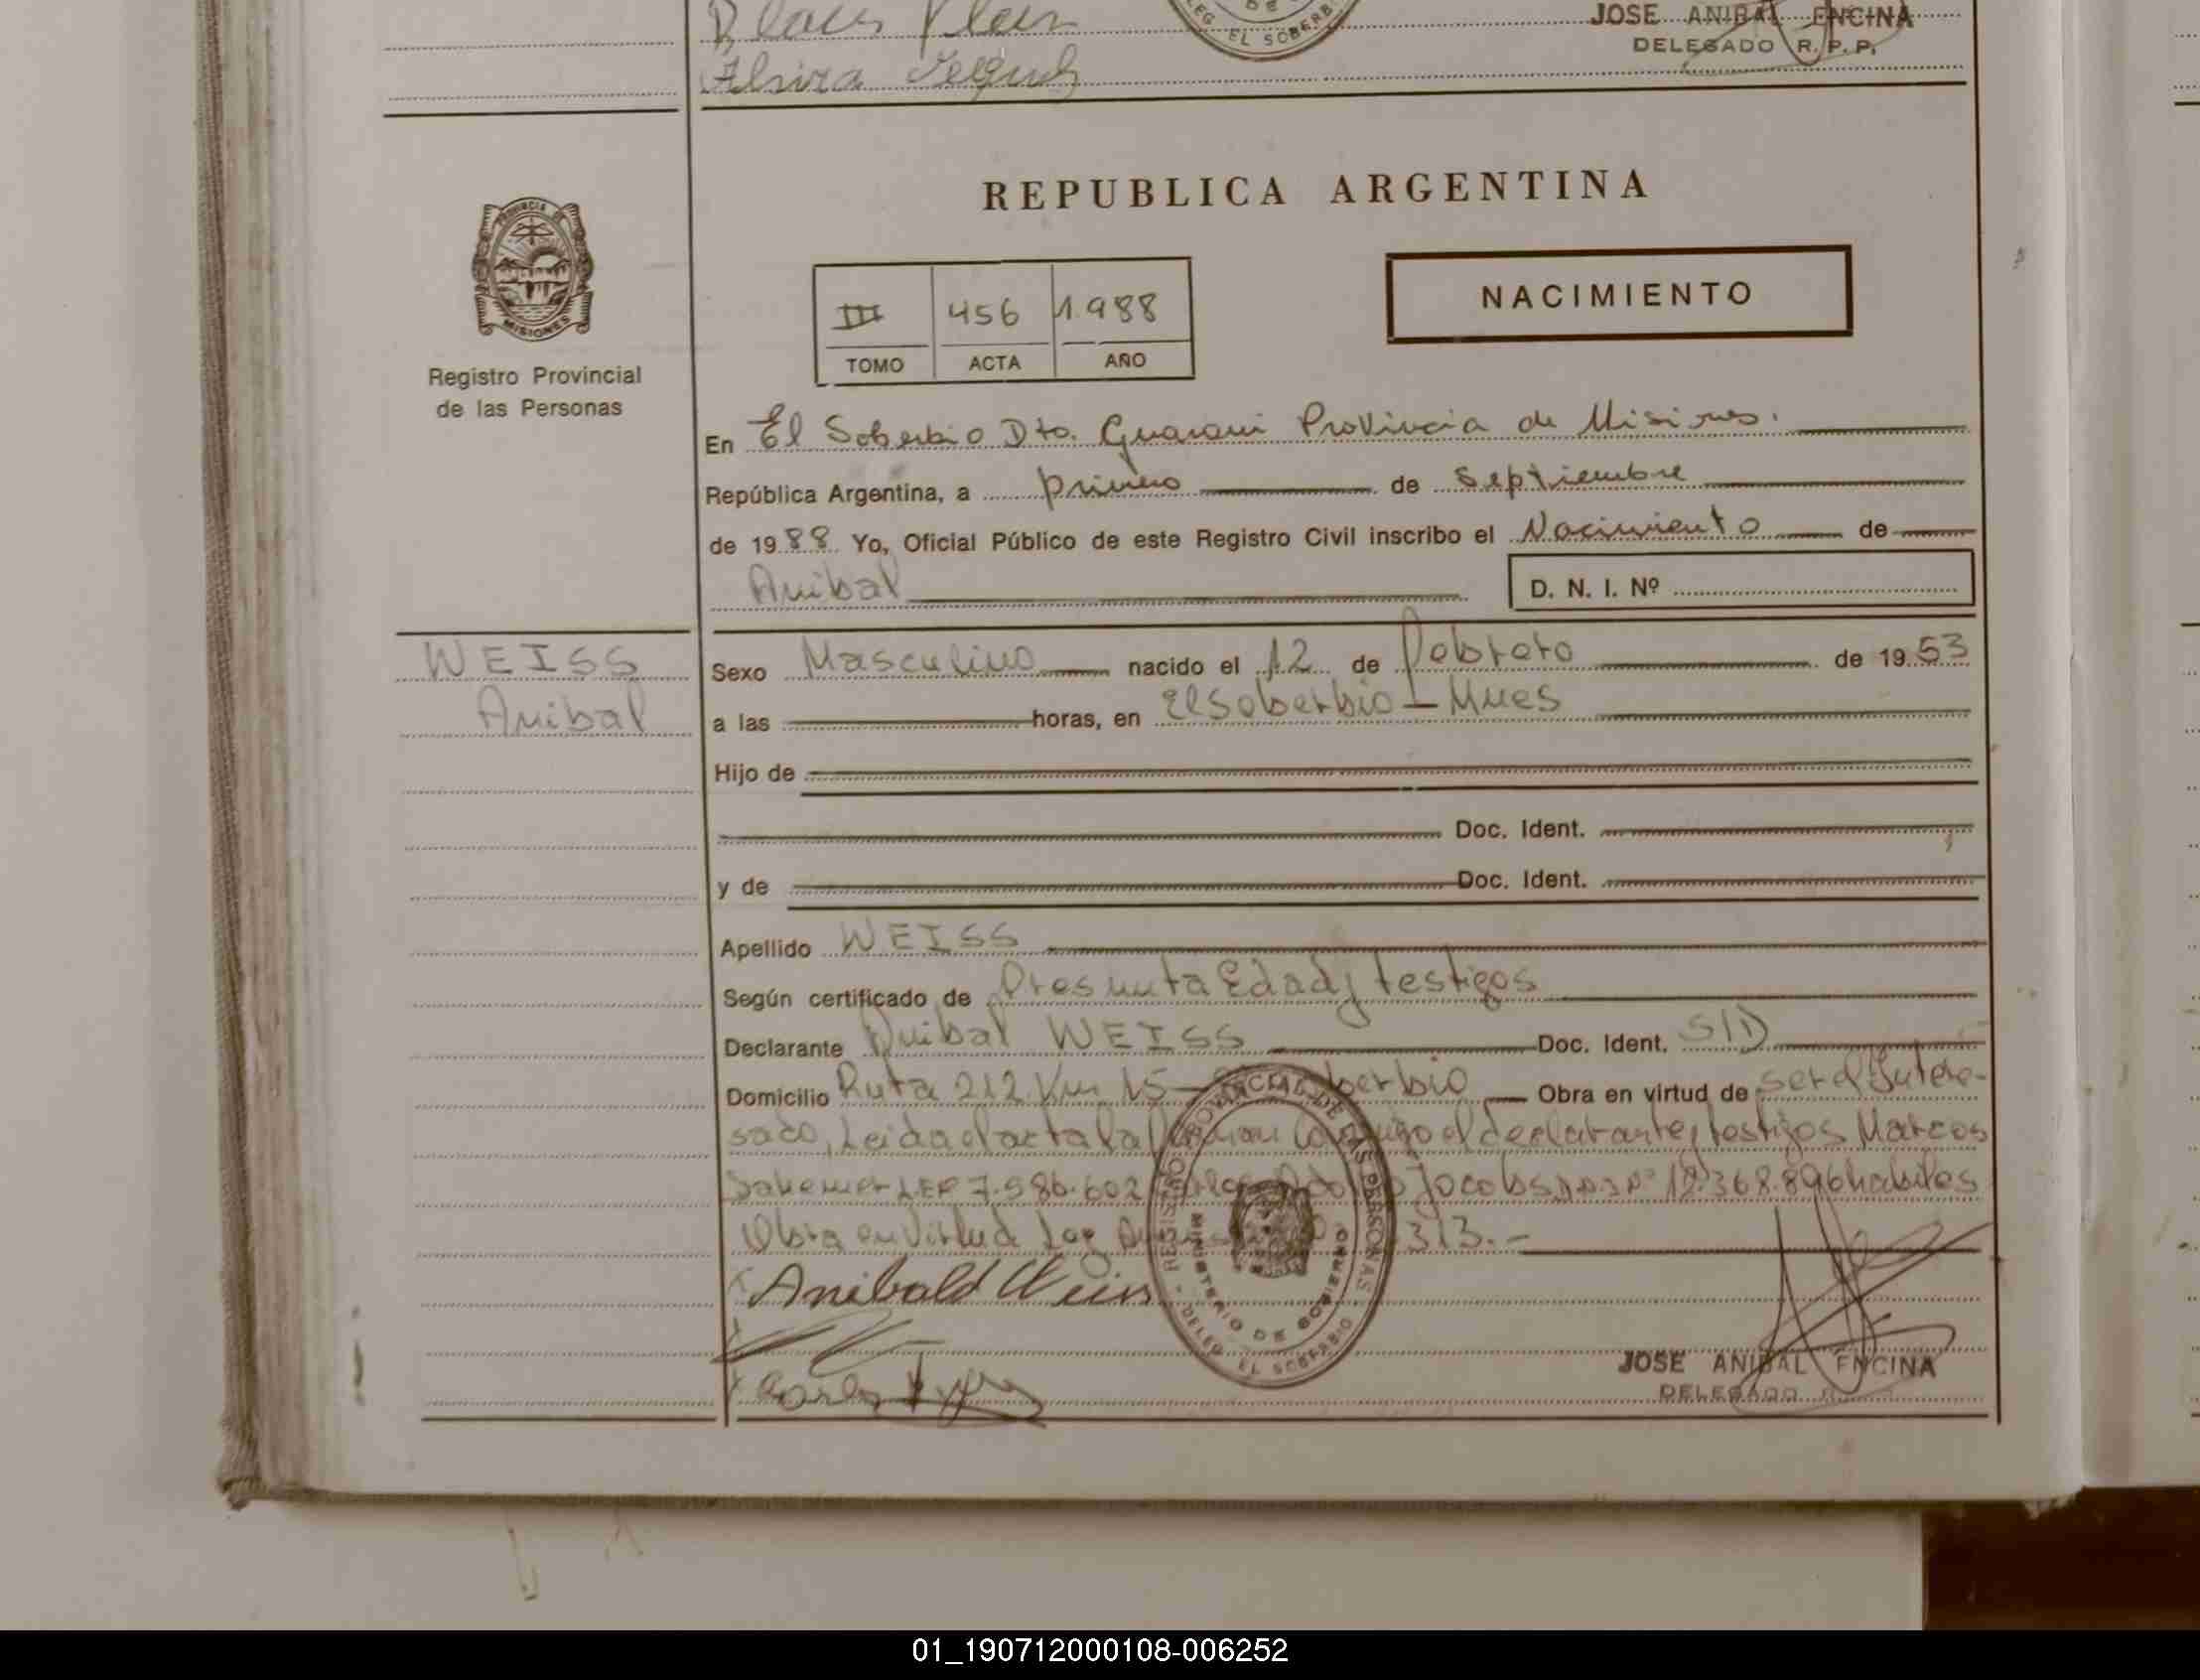 DELEG EL SOBERB
JOSE ANIBAL ENCINA
DELEGADO R. P. P.
Elvira
REPUBLICA ARGENTINA
PROVINCIA DE
MISIONES
III 456 1.988
TOMO ACTA AÑO
NACIMIENTO
Registro Provincial
de las Personas
En El Soberbio Dto. Guarani Provincia de Misiones.
República Argentina, a primero de Septiembre
de 1988 Yo, Oficial Público de este Registro Civil inscribo el Nacimiento de
Anibal D. N. I. Nº
WEISS
Anibal
Sexo Masculino nacido el 12 de Febrero de 1953
a las horas, en El Soberbio - Mnes
Hijo de
Doc. Ident.
y de Doc. Ident.
Apellido WEISS
Según certificado de Presunta Edad y testigos
Declarante Anibal WEISS Doc. Ident. S/D
Domicilio Ruta 212 Km 15 - Soberbio Obra en virtud de ser el Intere-
sado, Leida el acta la firman conmigo el declarante y testigos Marcos
7.586.602 Jacobs 12.368.896 habiles
Obra en Virtud 313.-
Anibald Weiss
Carlos
REGISTRO PROVINCIAL DE LAS PERSONAS
MINISTERIO DE GOBIERNO
DELEG EL SOBERBIO
JOSE ANIBAL ENCINA
DELEGADO
01_190712000108-006252